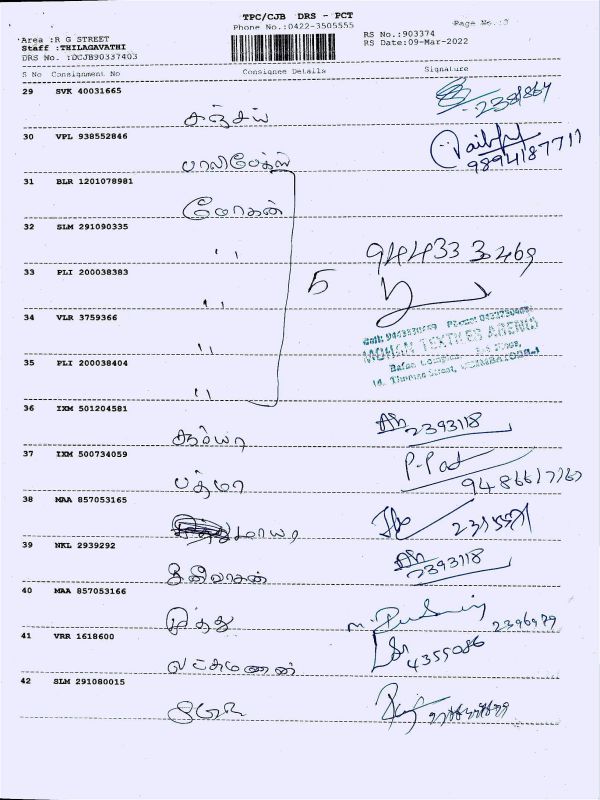 TPC/CJB DRS - PCT
Phone No.:0422-3505555
Page No.:3
Area :R G STREET
RS No.:903374
Staff :THILAGAVATHI
RS Date:09-Mar-2022
DRS No. :DCJB90337403
S No Consignment No Consignee Details Signature
29 SVK 40031665
சஞ்சய்
30 VPL 938552846
பாலிபேக்ஸ் 9894187711
31 BLR 1201078981
மோகன்
32 SLM 291090335
" 944333 3469
33 PLI 200038383
" 5
34 VLR 3759366
"
MOHAN TEXTILES AGENCY
35 PLI 200038404
"
36 IXM 501204581
2393118
37 IXM 500734059
பத்மா 9486617767
38 MAA 857053165
39 NKL 2939292
சீனிவாசன் 2393118
40 MAA 857053166
முத்து 2396979
41 VRR 1618600
லட்சுமணன் 4355086
42 SLM 291080015